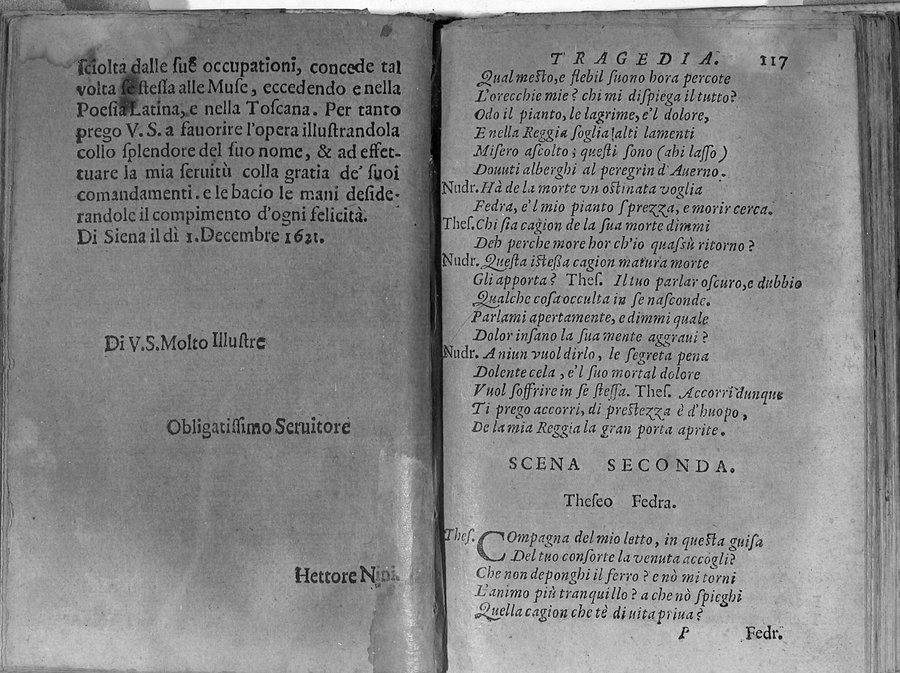 ſciolta dalle ſue occupationi, concede tal
volta ſe ſteſſa alle Muſe, eccedendo e nella
Poeſia Latina, e nella Toſcana. Per tanto
prego V. S. a fauorire l'opera illuſtrandola
collo ſplendore del ſuo nome, & ad effet-
tuare la mia ſeruitù colla gratia de' ſuoi
comandamenti. e le bacio le mani deſide-
randole il compimento d'ogni felicità.
Di Siena il dì 1. Decembre 1621.
Di V.S. Molto Illuſtre
Obligatiſſimo Seruitore
Hettore Nini.
TRAGEDIA. 117
Qual meſto, e flebil ſuono hora percote
L'orecchie mie? chi mi diſpiega il tutto?
Odo il pianto, le lagrime, e'l dolore,
E nella Reggia ſoglia alti lamenti
Miſero aſcolto; queſti ſono (ahi laſſo)
Douuti alberghi al peregrin d'Auerno.
Nudr. Hà de la morte vn oſtinata voglia
Fedra, e'l mio pianto ſprezza, e morir cerca.
Theſ. Chi ſia cagion de la ſua morte dimmi
Deh perche more hor ch'io quaſſù ritorno?
Nudr. Queſta iſteßa cagion matura morte
Gli apporta? Theſ. Il tuo parlar oſcuro, e dubbio
Qualche coſa occulta in ſe naſconde.
Parlami apertamente, e dimmi quale
Dolor inſano la ſua mente aggraui?
Nudr. A niun vuol dirlo, le ſegreta pena
Dolente cela, e'l ſuo mortal dolore
Vuol ſoffrire in ſe ſteſſa. Theſ. Accorri dunque
Ti prego accorri, di preſtezza è d'huopo,
De la mia Reggia la gran porta aprite.
SCENA SECONDA.
Theſeo Fedra.
Theſ. COmpagna del mio letto, in queſta guiſa
Del tuo conſorte la venuta accogli?
Che non deponghi il ferro? e nò mi torni
L'animo più tranquillo? a che nò ſpieghi
Quella cagion che tè di uita priua?
P Fedr.